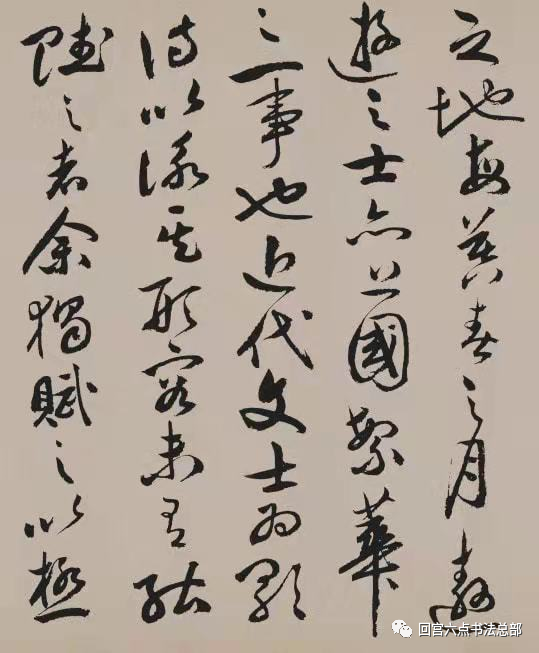 之地每暮春之月遨
遊之士亦上國繁華
之一事也近代文士为歌
詩以詠其形容未有能
賦之者余獨賦之以極
回宫六点书法总部